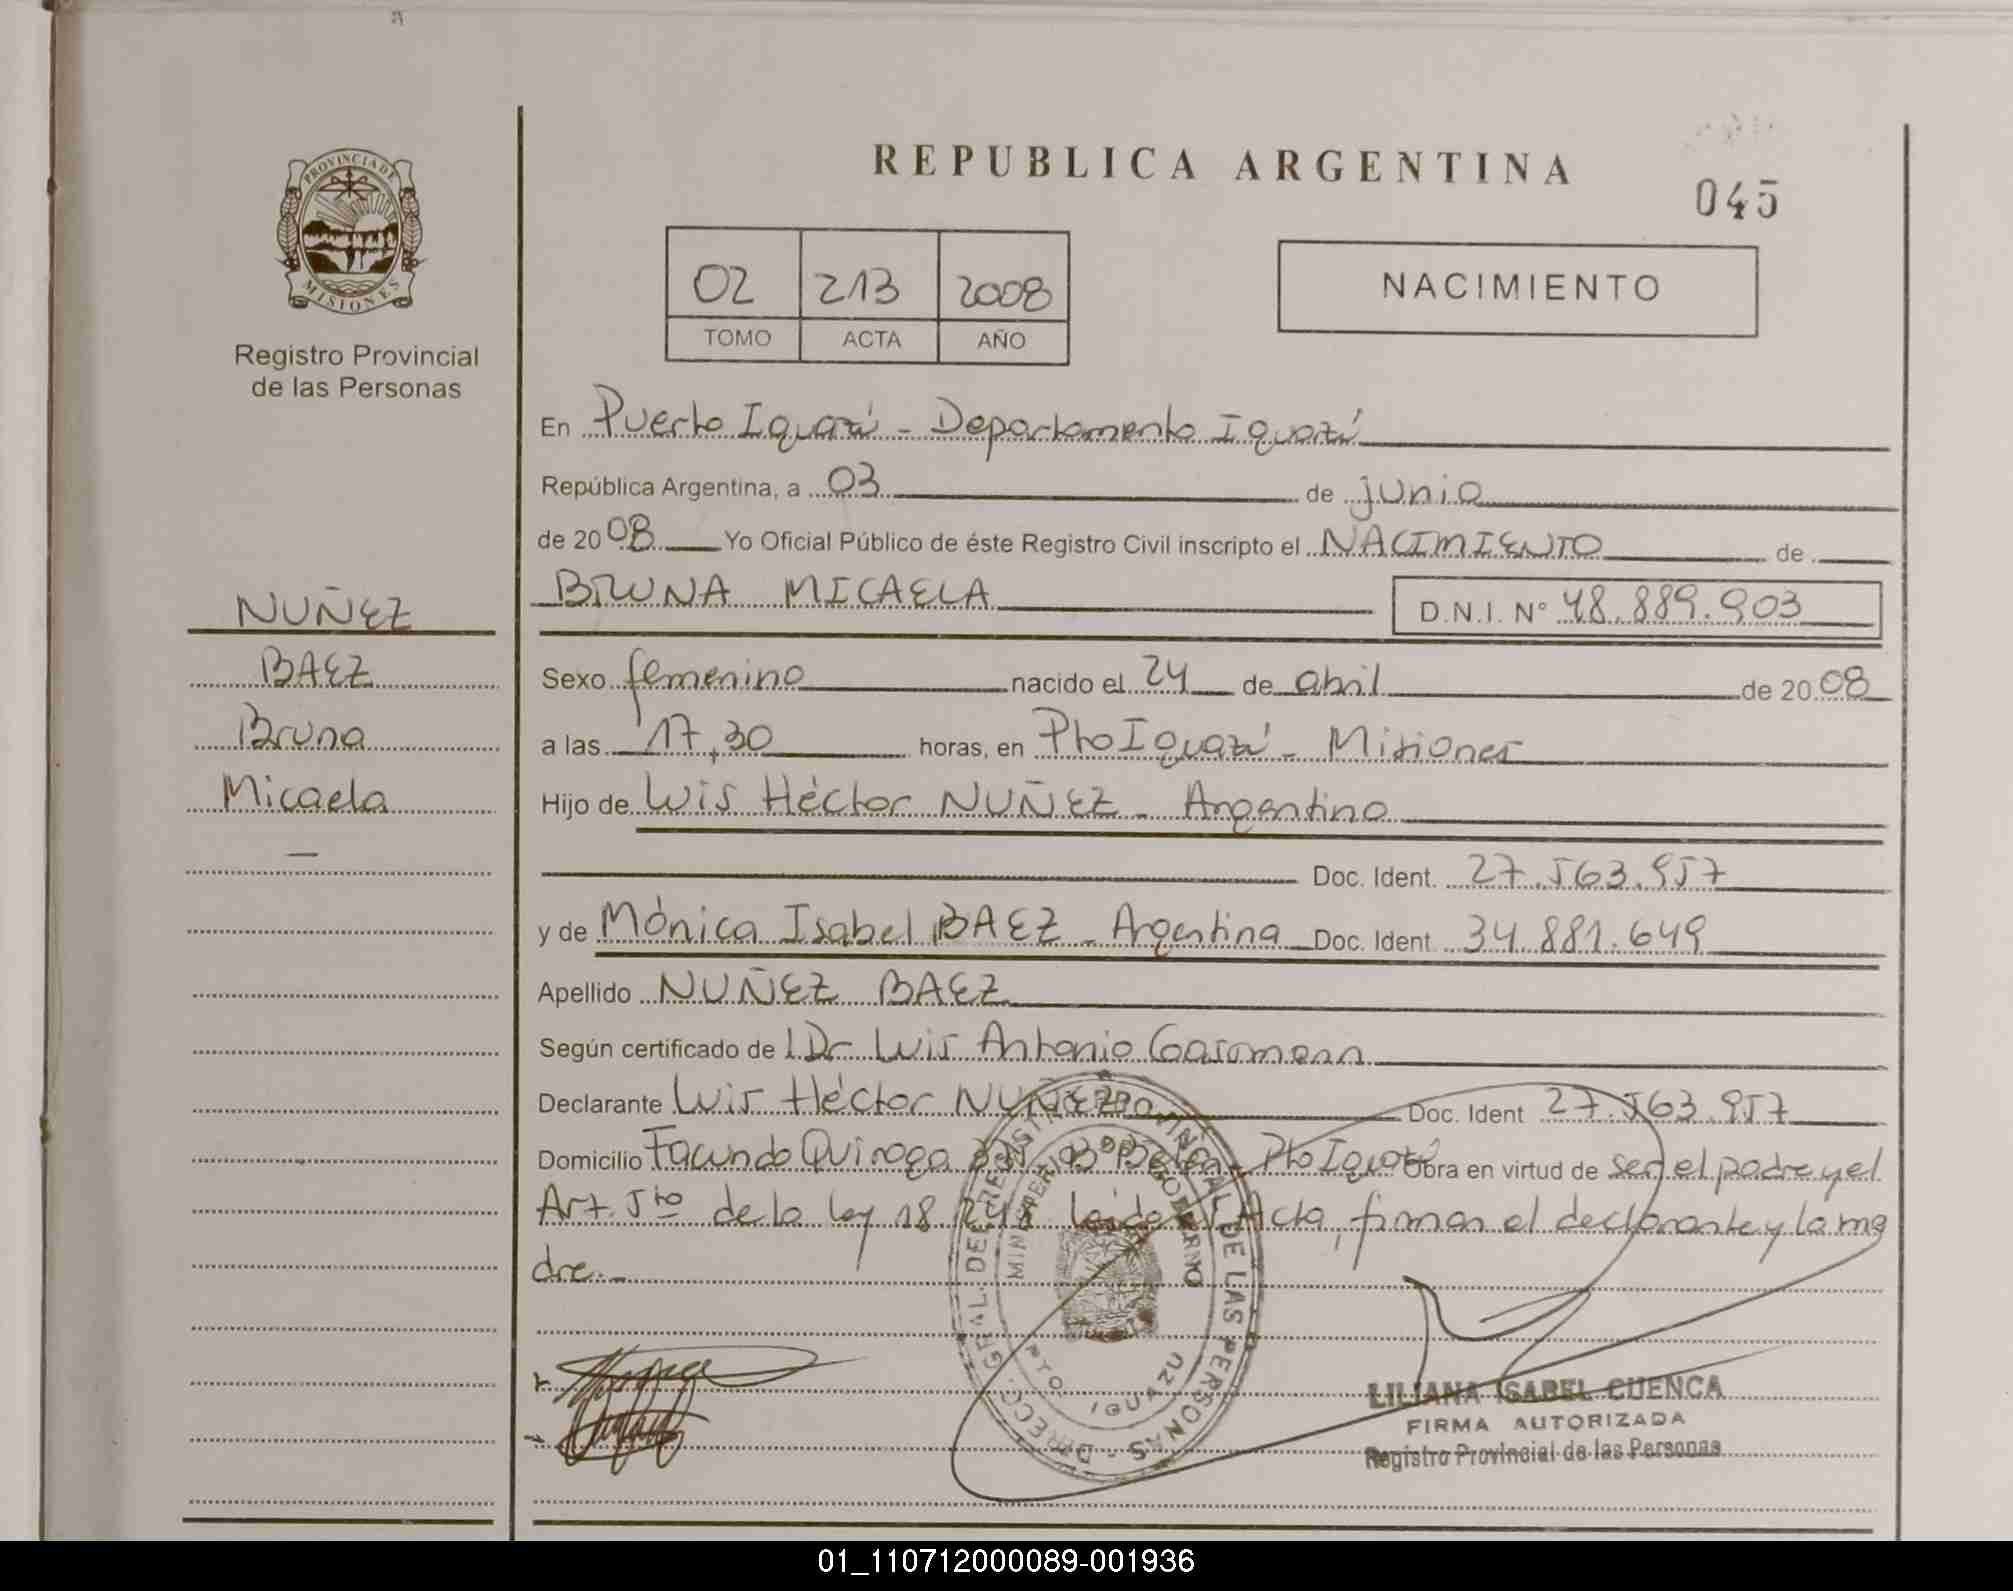 REPUBLICA ARGENTINA
045
PROVINCIA DE
MISIONES
Registro Provincial
de las Personas
02 213 2008
TOMO ACTA AÑO
NACIMIENTO
En Puerto Iguazú - Departamento Iguazú
República Argentina, a 03 de junio
de 2008 Yo Oficial Público de éste Registro Civil inscripto el NACIMIENTO de
BRUNA MICAELA D.N.I. N° 48.889.903
NUÑEZ
BAEZ
Bruna
Micaela
Sexo femenino nacido el 24 de abril de 2008
a las 17,30 horas, en Pto Iguazú - Misiones
Hijo de Luis Héctor NUÑEZ - Argentino
Doc. Ident. 27.563.957
y de Mónica Isabel BAEZ - Argentina Doc. Ident. 34.881.649
Apellido NUÑEZ BAEZ
Según certificado de l Dr Luis Antonio Gassmann
Declarante Luis Héctor NUÑEZ Doc. Ident 27.563.957
Domicilio Facundo Quiroga Pto Iguazú Obra en virtud de ser el padre y el
Art. 5to de la ley 18.248 leida el Acta, firman el declarante y la ma
dre.-
DIRECC. GRAL. DEL REGISTRO PROVINCIAL DE LAS PERSONAS -
MINISTERIO DE GOBIERNO
PTO IGUAZU
LILIANA ISABEL CUENCA
FIRMA AUTORIZADA
Registro Provincial de las Personas
01_110712000089-001936